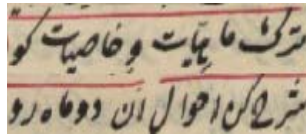 ترک ماهیات و خاصیات کو
شرح کن احوال آن دو ماه رو